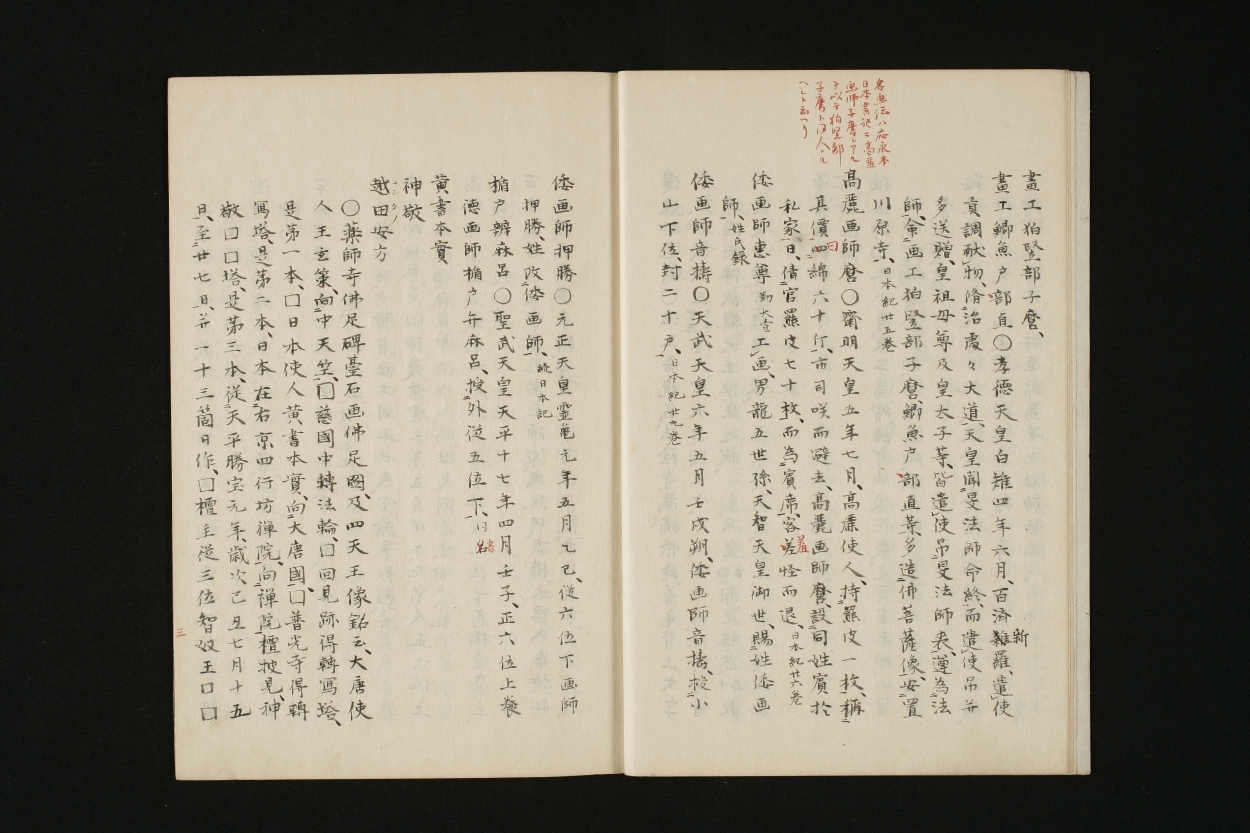 畫工狛竪部子麿、
畫工鯽魚戸部直〇孝德天皇白雉四年六月、百済新羅、遣使
貢調獻物、脩治處々大道、天皇聞旻法師命終、而遣使吊并
多送贈皇祖母尊及皇太子等、皆遣使吊旻法師喪、遂為法
師、命画工狛竪部子麿鯽魚戸部直等、多造佛菩薩像、安置
川原寺、日本紀廿五巻
髙麗画師麿〇齋明天皇五年七月、高麗使人、持羆皮一枚、稱
其價曰綿六十斤、市司咲而避去高麗画師麿、設同姓賓於
私家日、借官羆皮七十枚、而為賓席、客羞怪而退、日本紀廿六巻
倭画師惠尊勤大壹工画、男龍五世孫、天智天皇御世、賜姓倭画
師、姓氏録
倭画師音擣〇天武天皇六年五月壬戌朔、倭画師音擣、授小
山下位、封二十戸、日本紀廿九巻
倭画師押勝〇元正天皇靈亀元年五月乙巳、從六位下画師
押勝、姓改倭画師、続日本記
楯戸辨麻呂〇聖武天皇天平十七年四月壬子、正六位上養
德画師楯戸弁麻呂、授外從五位下、同書
黄書本實
神敬
越田安方
〇薬師寺佛足碑臺石画佛足圖及四天王像銘云、大唐使
人王玄策、向中天竺、□慈國中轉法輪、□回見跡得轉寫搭、
是第一本、□日本使人黄書本實、向大唐國、□普光寺得轉
寫搭、是第二本、日本在右京四行坊禅院、向禅院檀披見、神
敬□□搭、是第三本、從天平勝宝元年、歳次己丑七月十五
日、至廿七日、并一十三箇日作、□檀主從三位智奴王□□
三